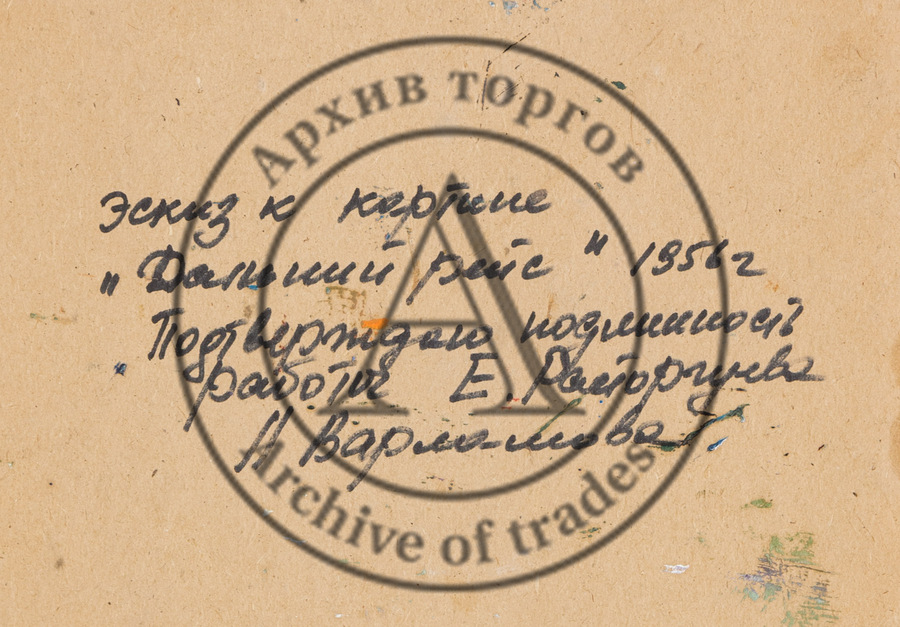 Архив торгов
Эскиз к картине
"Дальний рейс" 1956 г
Подтверждаю подлинность
работы Е. Расторгуева
Н Варламова
Archive of trades